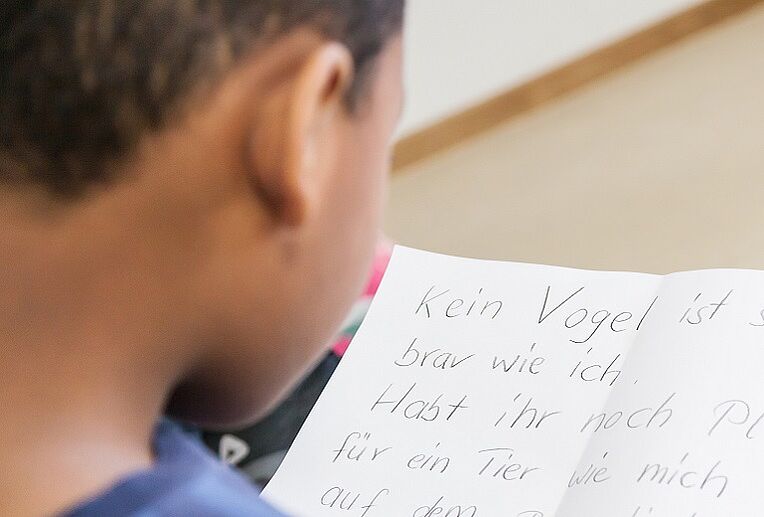 Kein Vogel ist s
brav wie ich.
Habt ihr noch Pl
für ein Tier wie mich
auf dem